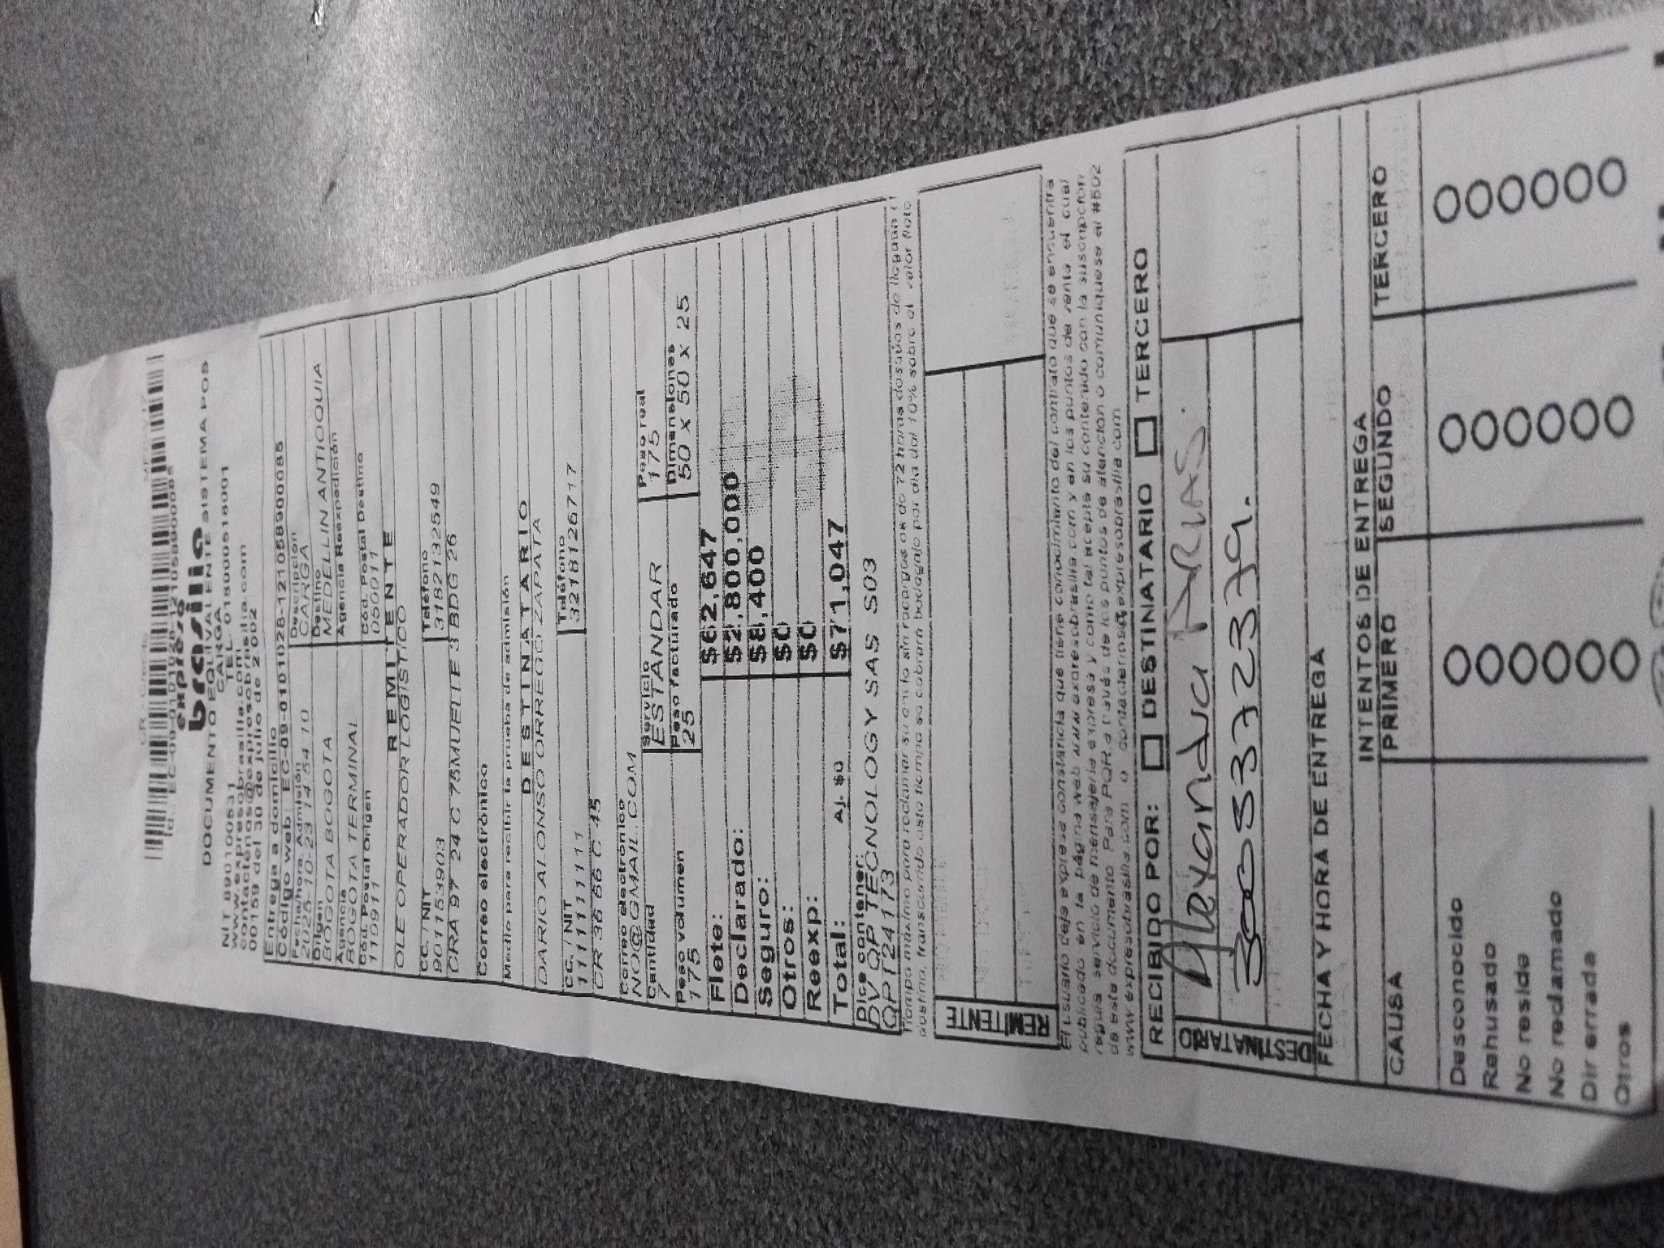 expreso
brasilia
DOCUMENTO EQUIVALENTE SISTEMA POS
CARGA
NIT 890100531 TEL. 018000518001
www.expresobrasilia.com
contactenos@expresobrasilia.com
00159 del 30 de julio de 2002
Entrega a domicilio
Código web: EC-09-0101028-1210589000085
Fecha/hora Admisión Descripción
2025-10-23 14:54:10 CARGA
Origen Destino
BOGOTA BOGOTA MEDELLIN ANTIOQUIA
Agencia Agencia Reexpedición
BOGOTA TERMINAL
Cód. Postal Origen Cód. Postal Destino
110911 050011
REMITENTE
OLE OPERADOR LOGISTICO
CC./NIT Teléfono
901153903 3182132549
CRA 97 24 C 75 MUELLE 3 BDG 26
Correo electrónico
Medio para recibir la prueba de admisión
DESTINATARIO
DARIO ALONSO ORREGO ZAPATA
CC./NIT Teléfono
1111111111 3218126717
CR 36 66 C 45
Correo electrónico
NO@GMAIL.COM
Cantidad Servicio Peso real
7 ESTANDAR 175
Peso volumen Peso facturado Dimensiones
175 25 50 x 50 x 25
Flete: $62,647
Declarado: $2,800,000
Seguro: $8,400
Otros: $0
Reexp: $0
Total: Aj. $0 $71,047
Dice contener:
DV QP TECNOLOGY SAS S03
QPT24173
Tiempo máximo para reclamar su envío sin recargos es de 72 horas después de llegada al
destino, transcurrido este tiempo se cobrará bodegaje por día del 10% sobre el valor flete
REMITENTE
El usuario deja expresa constancia que tiene conocimiento del contrato que se encuentra
publicado en la página web www.expresobrasilia.com y en los puntos de venta el cual
regula servicio de mensajería expresa y como tal acepta su contenido con la suscripción
de este documento Para PQR a través de los puntos de atención o comuníquese al #502
www.expresobrasilia.com o contactenos@expresobrasilia.com
RECIBIDO POR: DESTINATARIO TERCERO
DESTINATARIO
Alexandra ARIAS.
3008372379.
FECHA Y HORA DE ENTREGA
INTENTOS DE ENTREGA
CAUSA PRIMERO SEGUNDO TERCERO
Desconocido
Rehusado
No reside
No reclamado
Dir errada
Otros